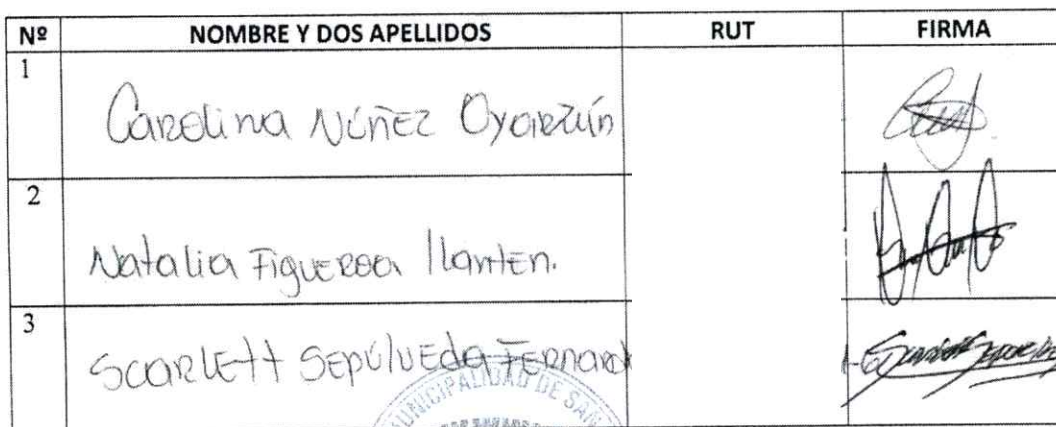 Nº NOMBRE Y DOS APELLIDOS RUT FIRMA
1 Carolina Núñez Oyarzún
2 Natalia Figueroa Llanten.
3 Scarlett Sepúlveda Fernand
MUNICIPALIDAD DE SAN